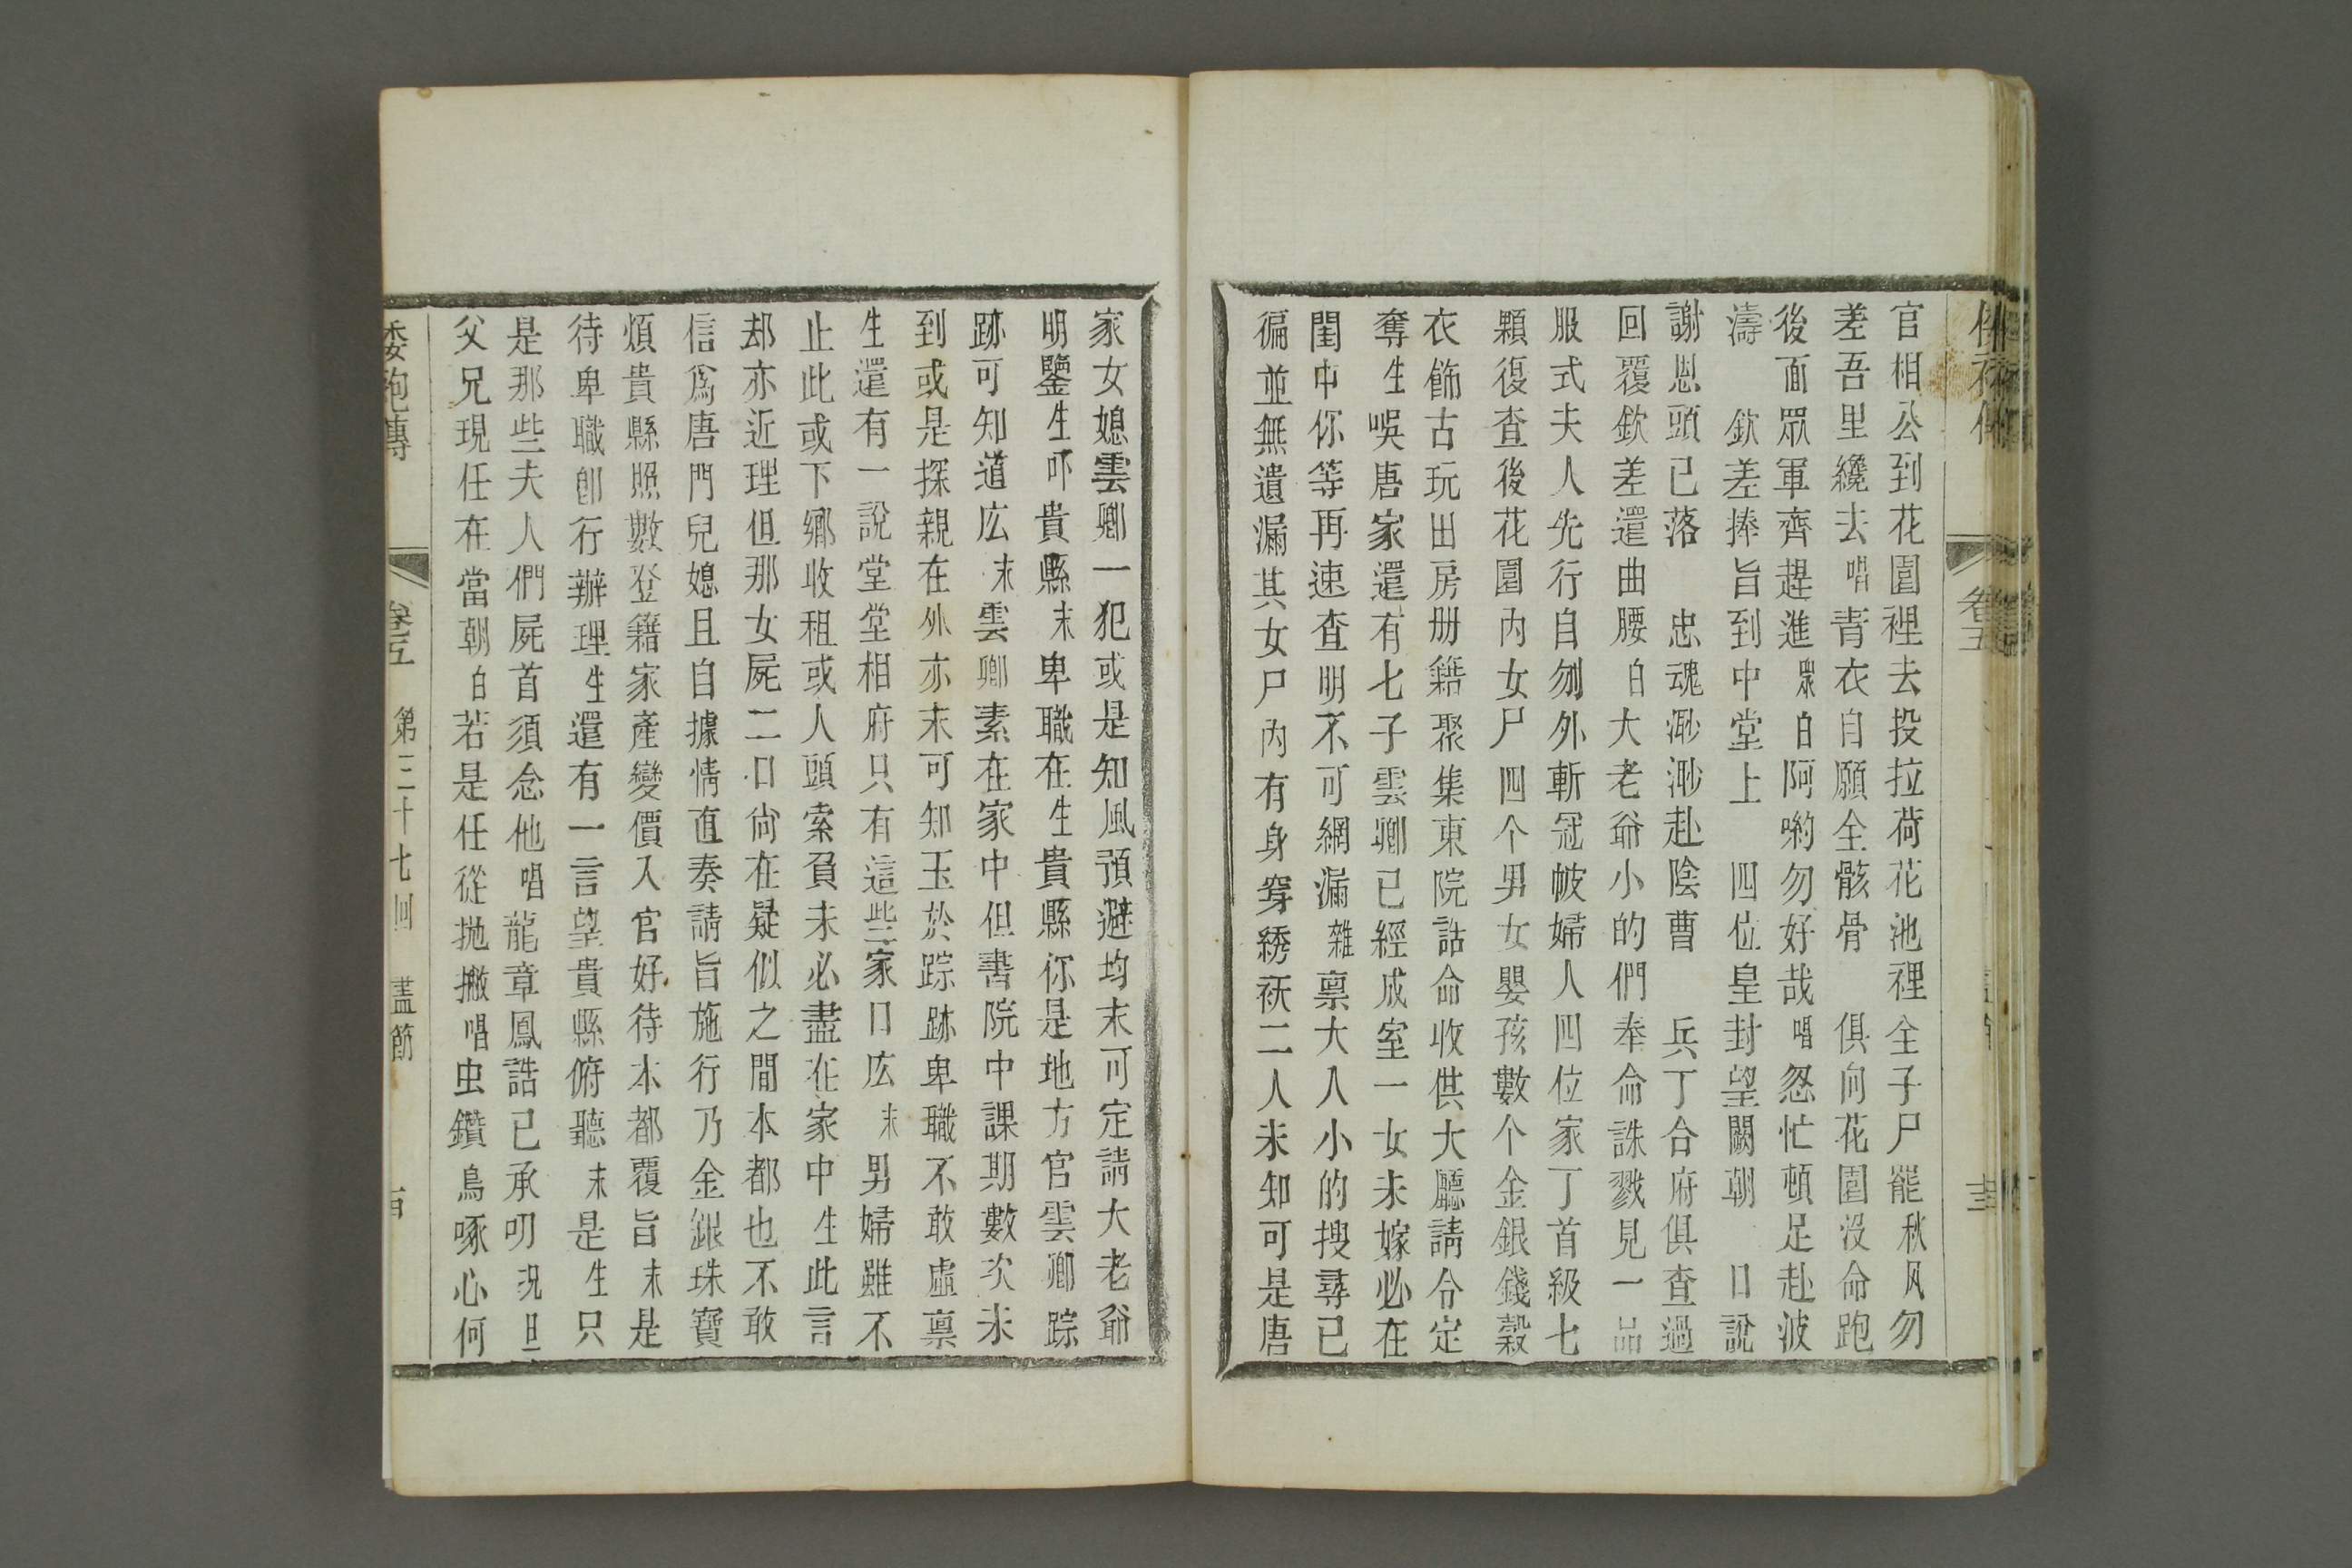 官相公到花園裡去投拉荷花池裡全子尸罷秋风勿
差吾里纔去唱青衣自願全骸骨　俱向花園没命跑
後面眾軍齊趕進眾白阿喲勿好哉唱忽忙頓足赴波
濤　欽差捧旨到中堂上　四位皇封望闕朝　口說
謝恩頭已落　忠魂渺渺赴陰曹　兵丁合府俱查過
回覆欽差還曲腰白大老爺小的們奉命誅戮見一品
服式夫人先行自刎外斬冠帔婦人四位家丁首級七
顆復查後花園內女尸四个男女嬰孩數个金銀錢穀
衣飾古玩田房册籍聚集東院誥命收供大廳請令定
奪生唉唐家還有七子雲卿已經成室一女未嫁必在
閨中你等再速查明不可網漏雜禀大人小的搜尋已
徧並無遺漏其女尸內有身穿綉袄二人未知可是唐
家女媳雲卿一犯或是知風預避均未可定請大老爺
明鑒生吓貴縣末卑職在生貴縣你是地方官雲卿踪
跡可知道庅末雲卿素在家中但書院中課期數次未
到或是探親在外亦未可知玉於踪跡卑職不敢虛禀
生還有一說堂堂相府只有這些家口庅末男婦雖不
止此或下鄉收租或人頭索負未必盡在家中生此言
却亦近理但那女屍二口尙在疑似之間本都也不敢
信爲唐門兒媳且自據情直奏請旨施行乃金銀珠寶
煩貴縣照數登籍家產變價入官好待本都覆旨末是
待卑職卽行辦理生還有一言望貴縣俯聽末是生只
是那些夫人們屍首須念他唱龍章鳳誥已承叨況且
父兄現任在當朝白若是任從拋撇唱虫鑽鳥啄心何
倭袍傳　卷五　第三十七回　盡節